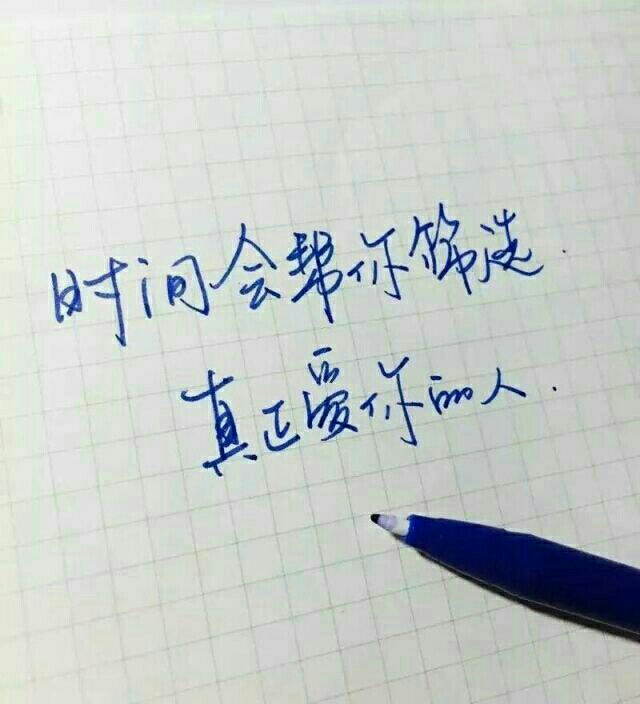 时间会帮你筛选.
真正爱你的人.